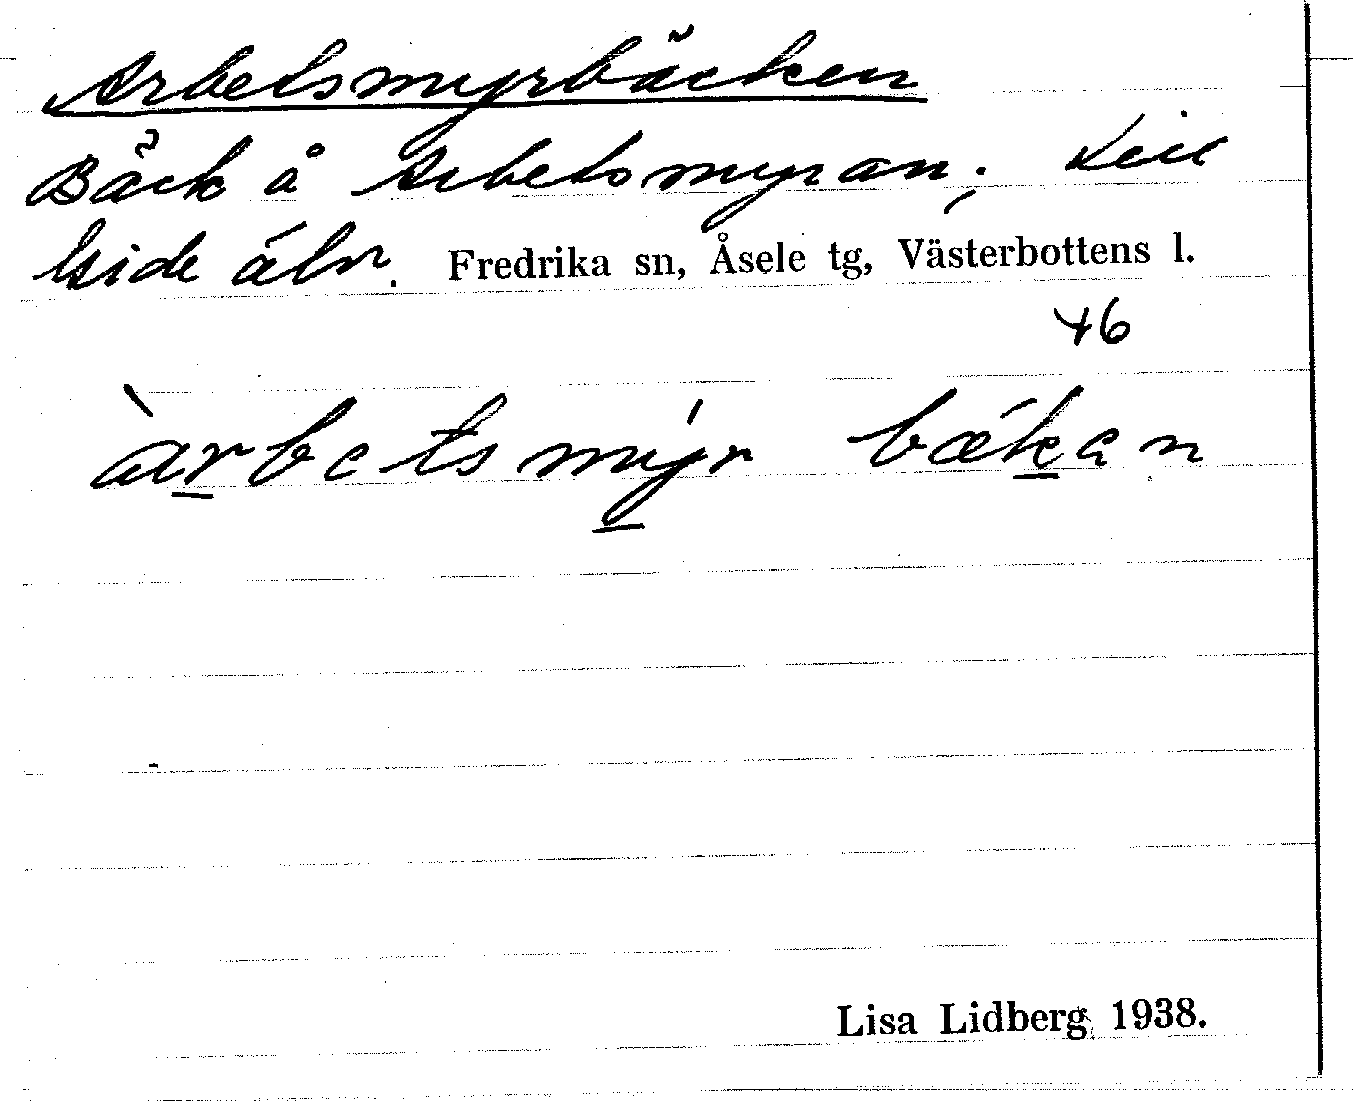 Arbetsmyrbäcken
Bäck å Arbetsmyran; till
Gide älv. Fredrika sn, Åsele tg, Västerbottens l.
46
àrbetsmýr bǽkan
Lisa Lidberg 1938.